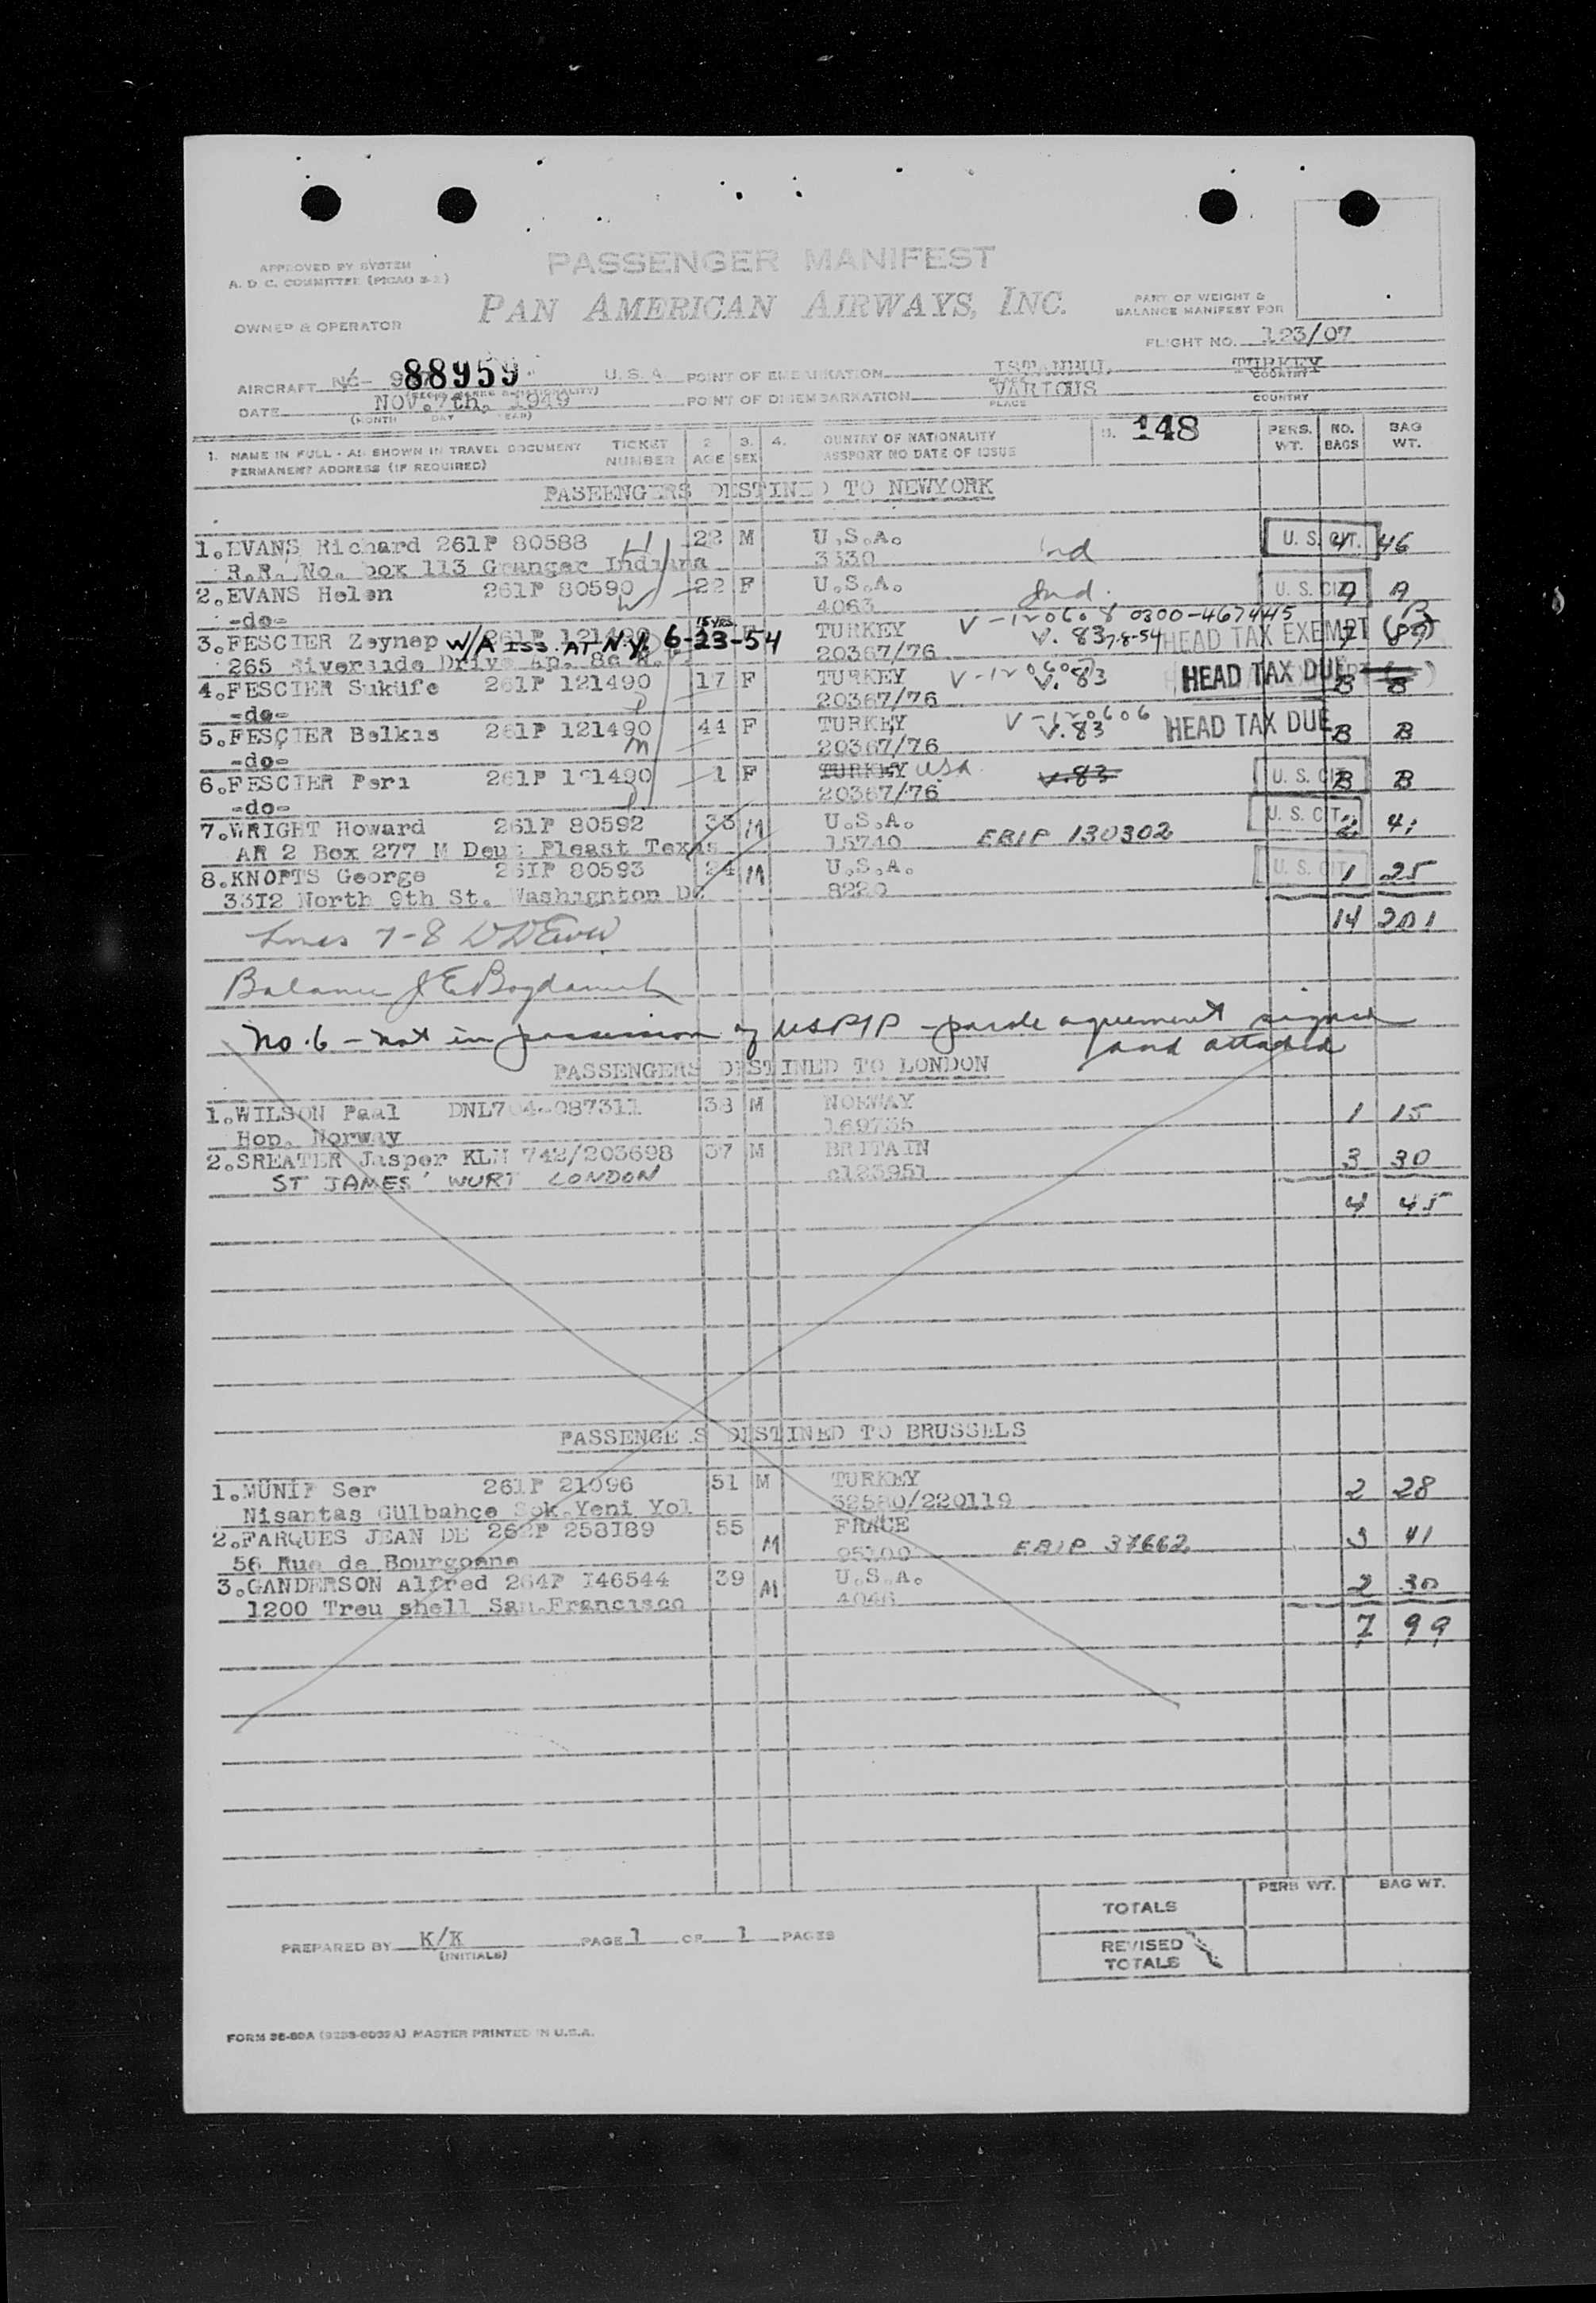 PASSENGER MANIFEST
APPROVED BY SYSTEM
A. D. C. COMMITTEE (PICAO 3-2)
PAN AMERICAN AIRWAYS, INC.
PART OF WEIGHT &
BALANCE MANIFEST FOR
OWNER & OPERATOR
FLIGHT NO. 123/07
AIRCRAFT NC- 88959 U. S. A. POINT OF EMBARKATION ISTANBUL, TURKEY
DATE NOV. 7th, 1949 POINT OF DISEMBARKATION VARIOUS
(MONTH DAY YEAR) PLACE COUNTRY
1. NAME IN FULL - AS SHOWN IN TRAVEL DOCUMENT TICKET 2. 3. 4. OUNTRY OF NATIONALITY 148 PERS. NO. BAG
PERMANENT ADDRESS (IF REQUIRED) NUMBER AGE SEX ASSPORT NO DATE OF ISSUE WT. BAGS WT.
PASEENGERS DESTINED TO NEWYORK
1.EVANS Richard 261P 80588 22 M U.S.A. U. S. CIT. 46
R.R. No. box 113 Granger Indiana 3530 Ind
2.EVANS Helen 261P 80590 22 F U.S.A. Ind. U. S. CIT. A A
-do- 4063 V-120608 0300-467445 B
3.FESCIER Zeynep W/A ISS. AT N.Y. 6-23-54 15 YRS. TURKEY V. 83 7-8-54 HEAD TAX EXEMPT
265 Riverside Drive Ap. 8a N.Y. 20367/76
4.FESCIER Suküfe 261P 121490 17 F TURKEY V-120607 V. 83 HEAD TAX DUE B B
-do- 20367/76
5.FESÇIER Belkis 261P 121490 44 F TURKEY V-120606 V. 83 HEAD TAX DUE B B
-do- 20367/76
6.FESCIER Peri 261P 121490 1 F TURKEY USA V.83 U. S. CIT. B B
-do- 20367/76
7.WRIGHT Howard 261P 80592 33 M U.S.A. U. S. CIT. 2 41
AR 2 Box 277 M Deu Pleast Texas 15740 EBIP 130302
8.KNOPTS George 261P 80593 24 M U.S.A. U. S. CIT. 1 25
33I2 North 9th St. Washignton DC 8220
14 201
Lines 7-8
Balance
No. 6 - not in possession of USP/P - parole agreement signed
and attached
PASSENGERS DESTINED TO LONDON
1.WILSON Paal DNL704-087311 38 M NORWAY 1 15
Hop. Norway 169735
2.SREATER Jasper KLM 742/203698 37 M BRITAIN 3 30
ST JAMES' WURT LONDON c123951
4 45
PASSENGE S DESTINED TO BRUSSELS
1.MÜNIF Ser 261P 21096 51 M TURKEY 2 28
Nisantas Gülbahçe Sok.Yeni Yol 32580/220119
2.FARQUES JEAN DE 262P 258I89 55 M FRACE 3 41
56 Rue de Bourgoane 95100 EBIP 37662
3.GANDERSON Alfred 264P I46544 39 M U.S.A. 2 30
1200 Treu shell San.Francisco 4046
7 99
PERS WT. BAG WT.
TOTALS
PREPARED BY K/K PAGE 1 OF 1 PAGES
(INITIALS)
REVISED
TOTALS
FORM 36-80A MASTER PRINTED IN U.S.A.